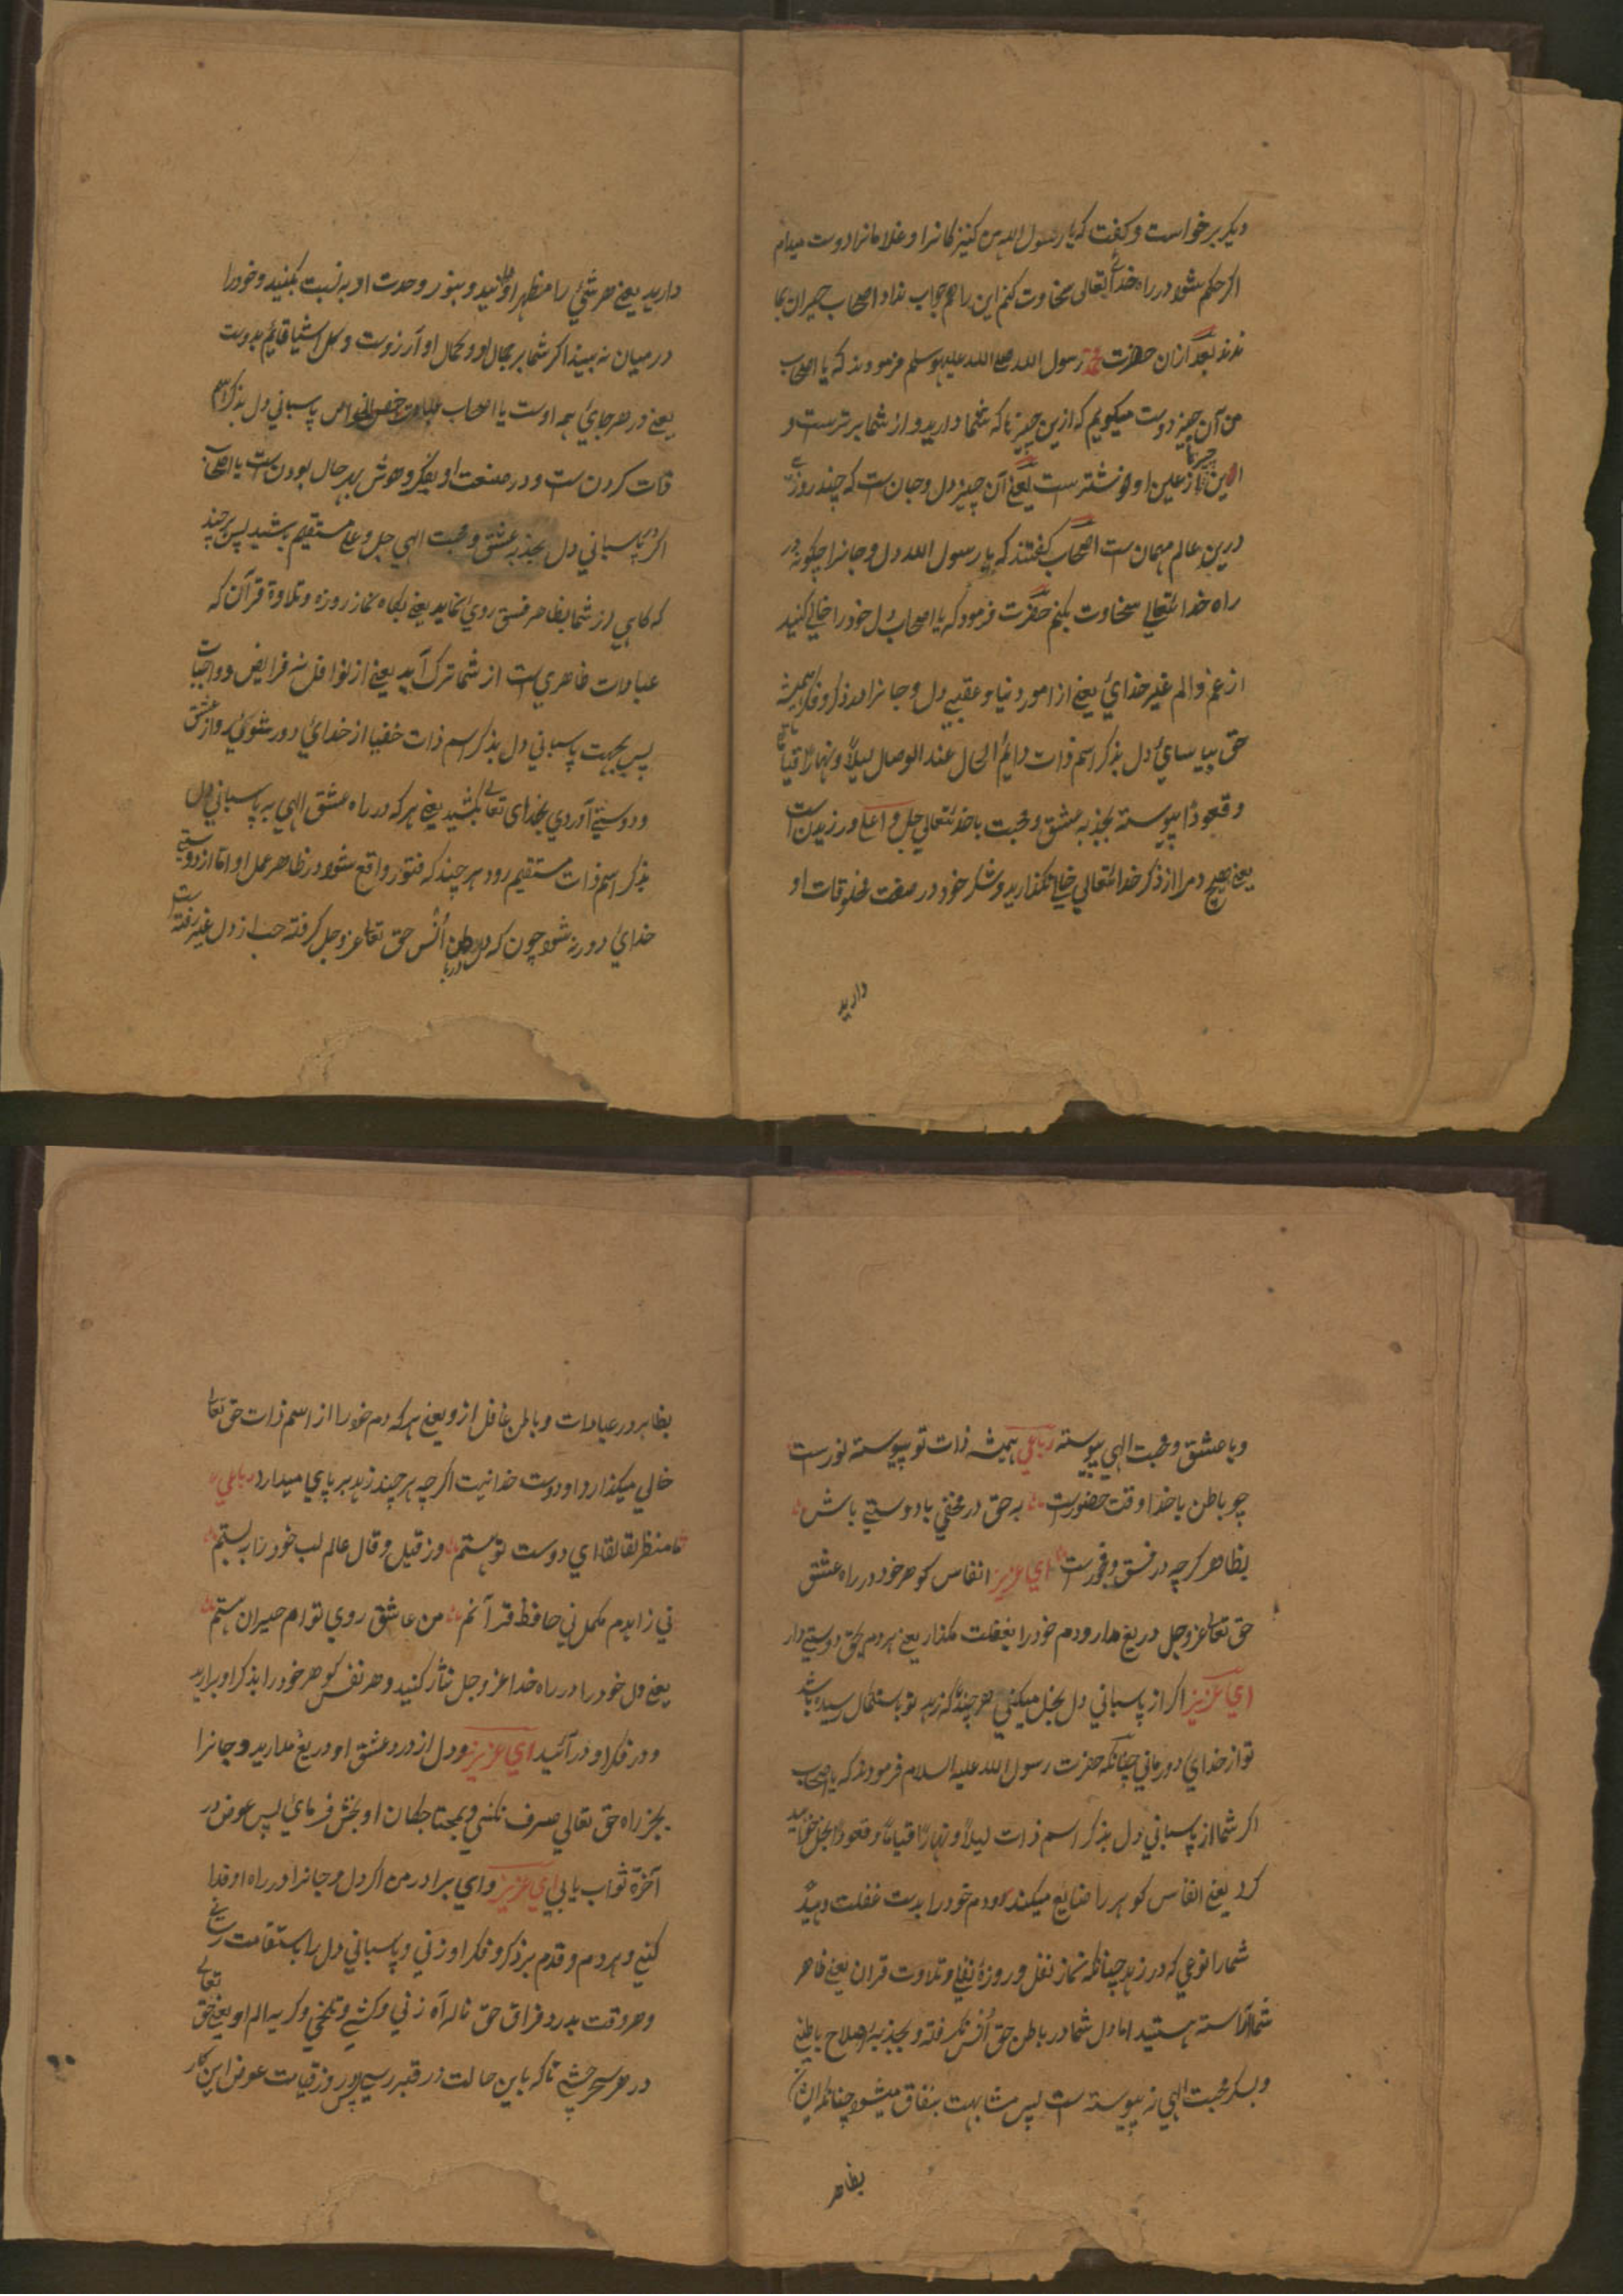 دیکر برخواست و کفت که یا رسول الله من کنیزکانرا و غلامانرا دوست میدام
اکر حکم شود در راه خدای تعالی سخاوت کنم این را هم جواب نداد اصحاب حیران بما
ندند بعد ازان حضرت محمد رسول الله صلی الله علیه وسلم فرمودند که یا اصحاب
من آن چیز دوست میکویم که ازین چیزها که شما دارید و از شما برترست و
ازین چیزها او خوشترست یعنی آن چیز دل و جان است که چند روزی
درین عالم مهمان ست اصحاب کفتند که یا رسول الله دل و جانرا چکونه در
راه خدایتعالی سخاوت بکنم حضرت فرمود که یا اصحاب دل خود را خالی کنید
از غم و الم غیر خدای یعنی از امور دنیا و عقبی دل و جانرا در ذکر و فکر همیشه
حق بپاسبای دل بذکر اسم ذات دایم الحال عند الوصال لیلاً و نهاراً قیاماً
و قعوداً پیوسته بجذبه عشق و محبت با خدایتعالی جل و اعلی ورزیدن است
یعنی هیچ دم را از ذکر خدایتعالی خالی نکذارید و شکر خود در صفت مخلوقات او
دارید
دارید یعنی هر شئ را مظهر او دانید و بنور وحدت او به نسبت بکنید و خود را
در میان نه بیند اکر شما بر جمال او و کمال او آرزوست و کل اشیا قایم بدوست
یعنی در هر جای همه اوست یا اصحاب عبادت خاص الخواص پاسبانی دل بذکر اسم
ذات کردن ست و در صنعت او بفکر و هوش بهر حال بودن است یا اصحاب
اکر در پاسبانی دل بجذبه عشق و محبت الهی جل و علی مستقیم بشید پس هر چند
که کاهی از شما بظاهر فسق روی نماید یعنی بکاه نماز روزه و تلاوة قرآن که
عبادات ظاهری ست از شما ترک آید یعنی از نوافل نه فرایض و واجبات
پس بجهت پاسبانی دل بذکر اسم ذات خفیا از خدای دور شوی و از عشق
و دوستی آوردی بخدای تعالی بکشید یعنی هر که در راه عشق الهی به پاسبانی دل
بذکر اسم ذات مستقیم رود هر چند که فتور واقع شود در ظاهر عمل او اما از دوستی
خدای دور نه شود چون که در باطن اُنس حق تعالی عز و جل کرفته حب از دل غیر رفته است
و با عشق و محبت الهی پیوسته رباعی همیشه ذات تو پیوسته نورست
چو باطن با خدا وقت حضورست به حق در مخفی با دوستی باش
بظاهر کرچه در فسق و فجورست ای عزیز انفاس کوهر خود در راه عشق
حق تعالی عز و جل دریغ مدار و دم خود را بغفلت مکذار یعنی هر دم بحق دوستی دار
ای عزیز اکر از پاسبانی دل بخل میکنی هر چند که زهد تو باستکمال رسیده باشد
تو از خدای دور مانی چنانکه حضرت رسول الله علیه السلام فرمودند که یا اصحاب
اکر شما از پاسبانی دل بذکر اسم ذات لیلاً و نهاراً قیاماً و قعوداً بخل خواهید
کرد یعنی انفاس کوهر را ضایع میکند و دم خود را بدست غفلت دهید
شما را نوعی که در زهد چنانکه نماز نفل و روزهٔ نفلی و تلاوت قران یعنی ظاهر
شما آراسته هستید اما دل شما در باطن حق اُنس نکرفته و بجذبهٔ اصلاح باطنی
و بسکر محبت الهی نه پیوسته است پس مشابهت بنفاق میشود چنانکه ایشان
بظاهر
بظاهر در عبادات و باطن غافل ازو یعنی هر که دم خود را از اسم ذات حق تعالی
خالی میکذارد او دوست خدا نیست اکرچه هر چند زهد بر پای میدارد رباعی
ما منظر لقا لقا ای دوست تو هستم وز قیل و قال عالم لب خود را ببستم
نی زاهدم مکمل نی حافظ قرآنم من عاشق روی توام حیران هستم
یعنی دل خود را در راه خدا عز و جل نثار کنید و هر نفس کوهر خود را بذکر او برارید
و در فکر او در آئید ای عزیز و دل از درد عشق او دریغ مدارید و جانرا
بجز راه حق تعالی صرف نکنی و بمحتاجکان او بخش فرمای پس عوض در
آخرة ثواب یابی ای عزیز و ای برادر من اکر دل و جانرا در راه او فدا
کنی و هر دم و قدم بر ذکر و فکر او زنی و پاسبانی دل را باستقامت رسانی
و هر وقت بدرد فراق حق ناله آه زنی و کشی و تلخی و کریه الم او یعنی حق تعالی
در هر سحر چشی تا که باین حالت در قبر رسی پس روز قیامت عوض این کار